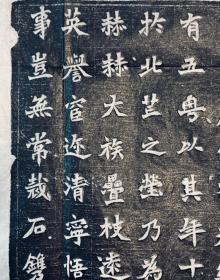 有五粤以其年十
於北芒之塋乃為
赫赫大族疊枝遠
英譽宦迩清寧悟
事豈無常裁石鐫